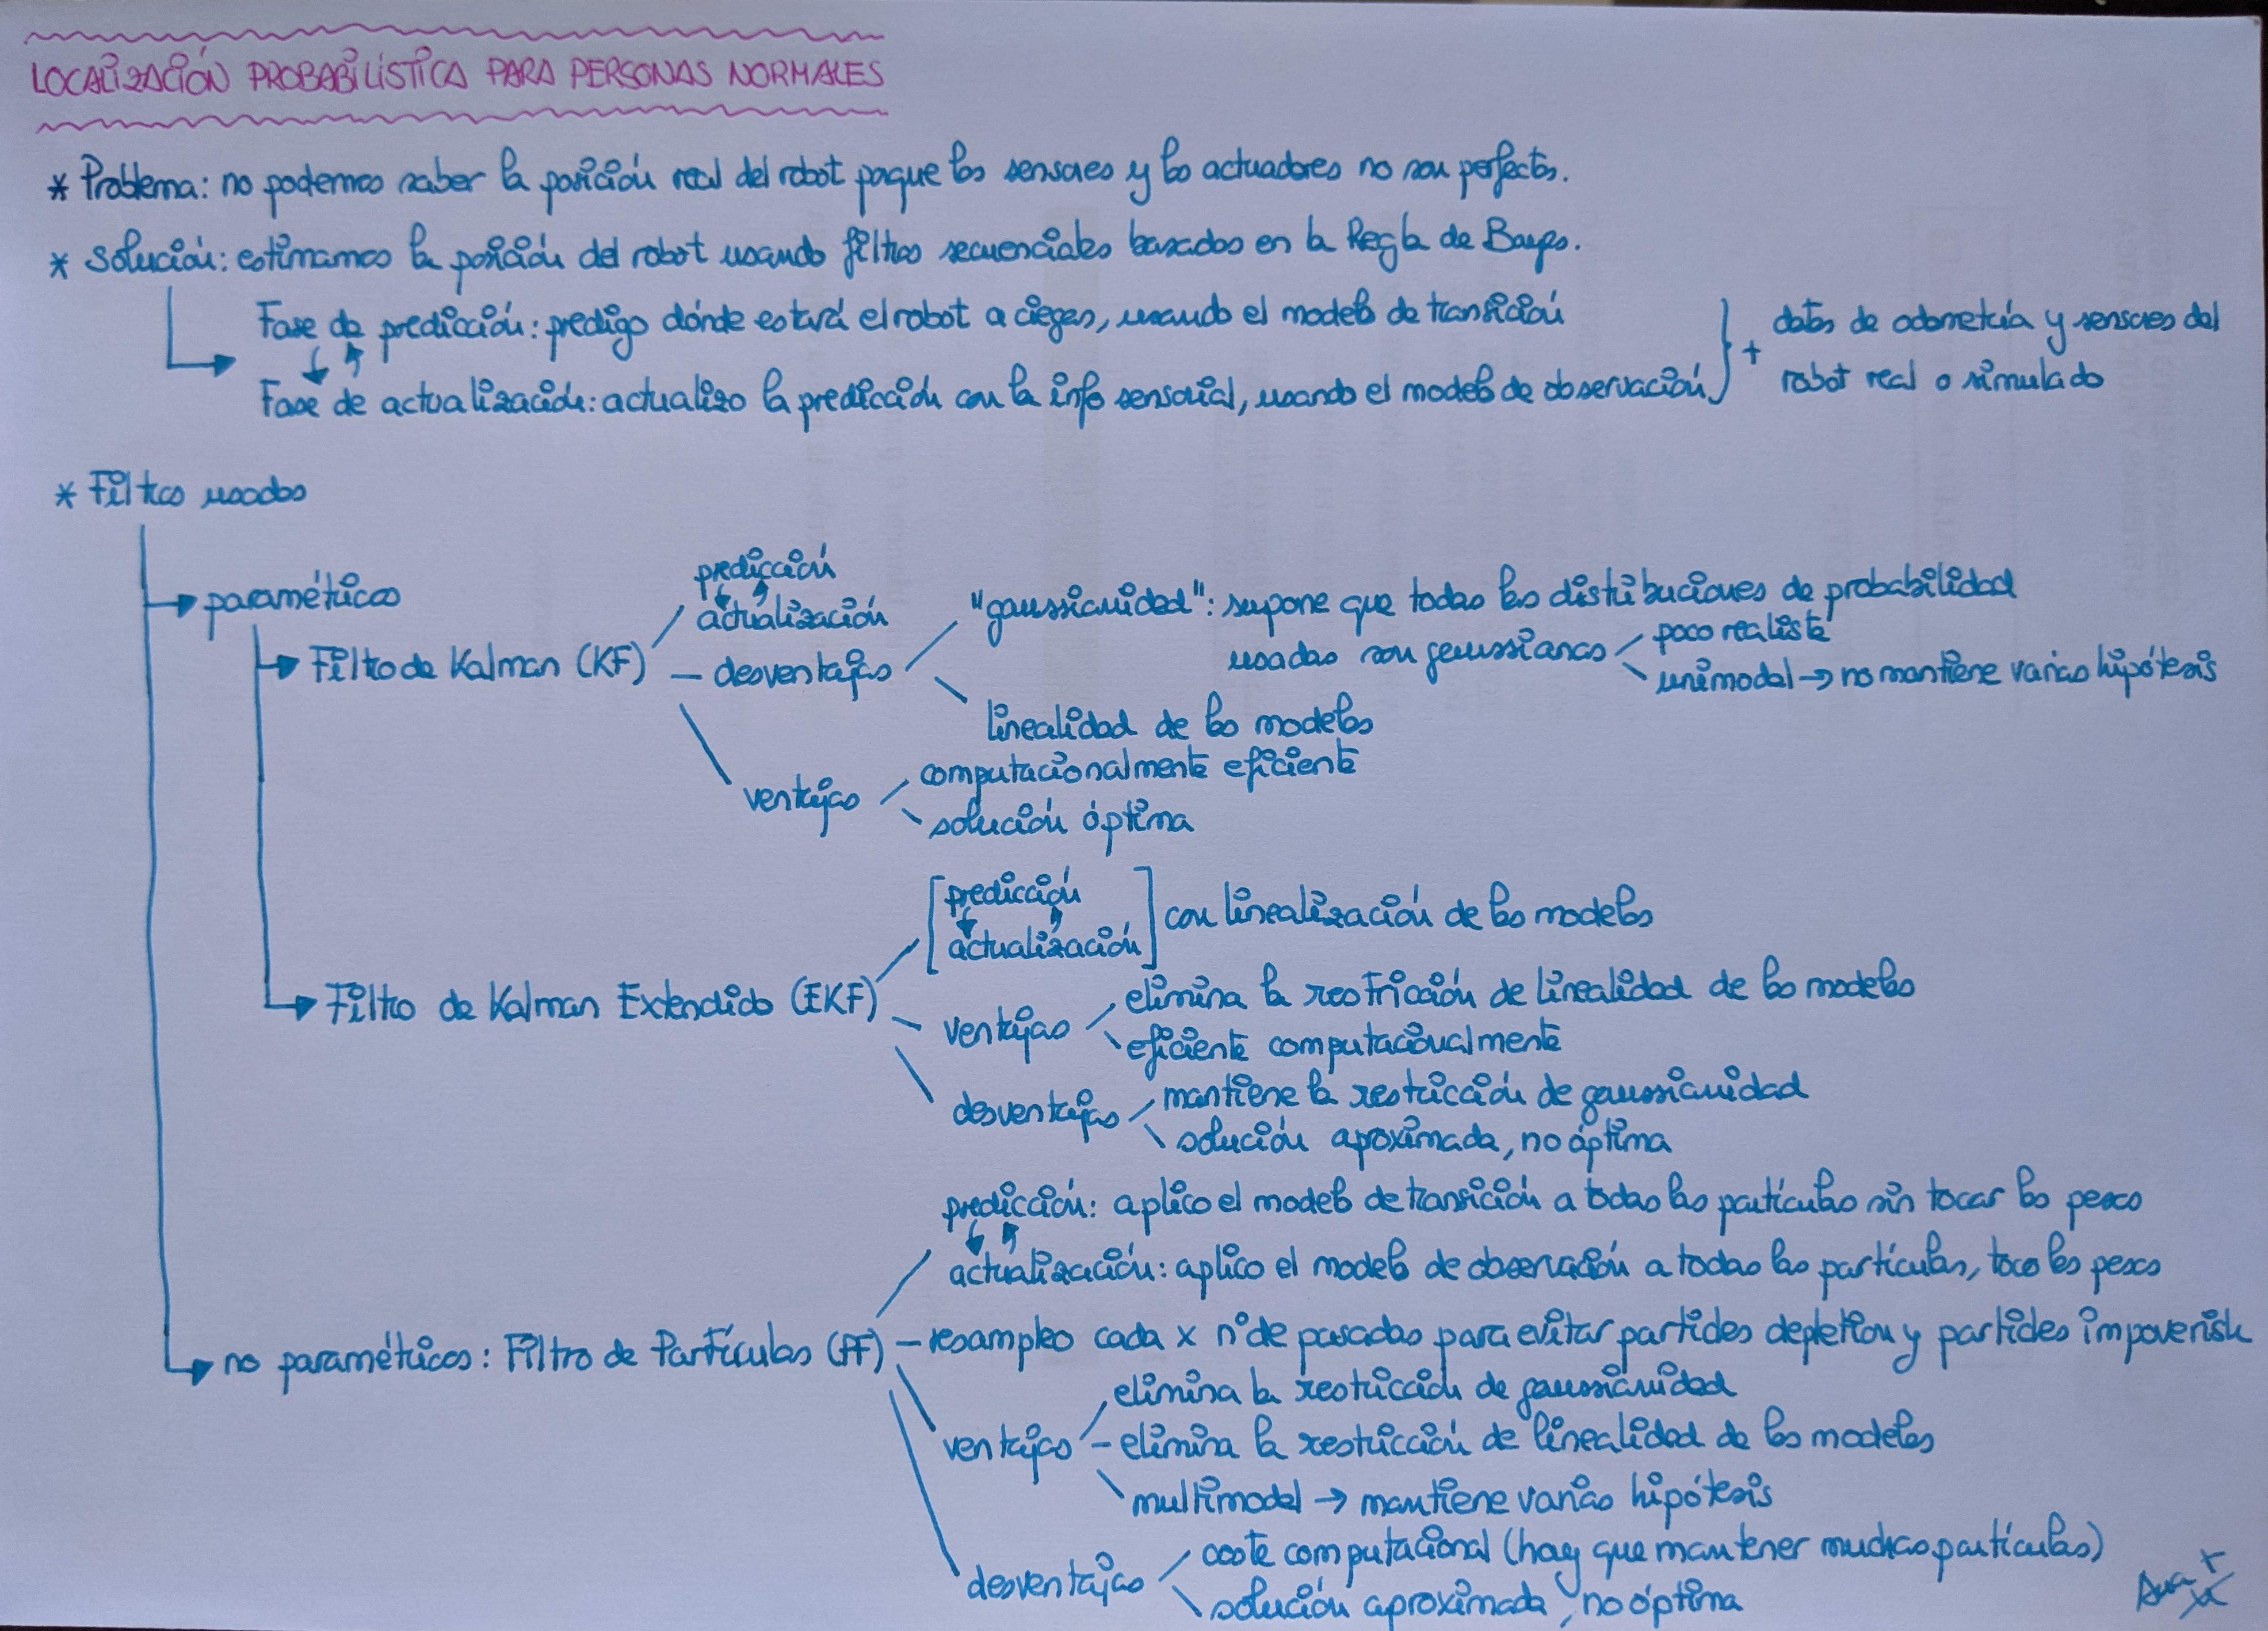 LOCALIZACIÓN PROBABILÍSTICA PARA PERSONAS NORMALES
* Problema: no podemos saber la posición real del robot porque los sensores y los actuadores no son perfectos.
* Solución: estimamos la posición del robot usando filtros secuenciales basados en la Regla de Bayes.
Fase de predicción: predigo dónde estará el robot a ciegas, usando el modelo de transición
Fase de actualización: actualizo la predicción con la info sensorial, usando el modelo de observación
+ datos de odometría y sensores del
robot real o simulado
* Filtros usados
paramétricos
Filtro de Kalman (KF)
predicción
actualización
desventajas
"gaussianidad": supone que todas las distribuciones de probabilidad
usadas son gaussianas
poco realista
unimodal → no mantiene varias hipótesis
linealidad de los modelos
ventajas
computacionalmente eficiente
solución óptima
Filtro de Kalman Extendido (EKF)
[predicción
actualización] con linealización de los modelos
ventajas
elimina la restricción de linealidad de los modelos
eficiente computacionalmente
desventajas
mantiene la restricción de gaussianidad
solución aproximada, no óptima
no paramétricos: Filtro de Partículas (PF)
predicción: aplico el modelo de transición a todas las partículas sin tocar los pesos
actualización: aplico el modelo de observación a todas las partículas, toco los pesos
resampleo cada x nº de pasadas para evitar particles depletion y particles impoverish
ventajas
elimina la restricción de gaussianidad
elimina la restricción de linealidad de los modelos
multimodal → mantiene varias hipótesis
desventajas
coste computacional (hay que mantener muchas partículas)
solución aproximada, no óptima